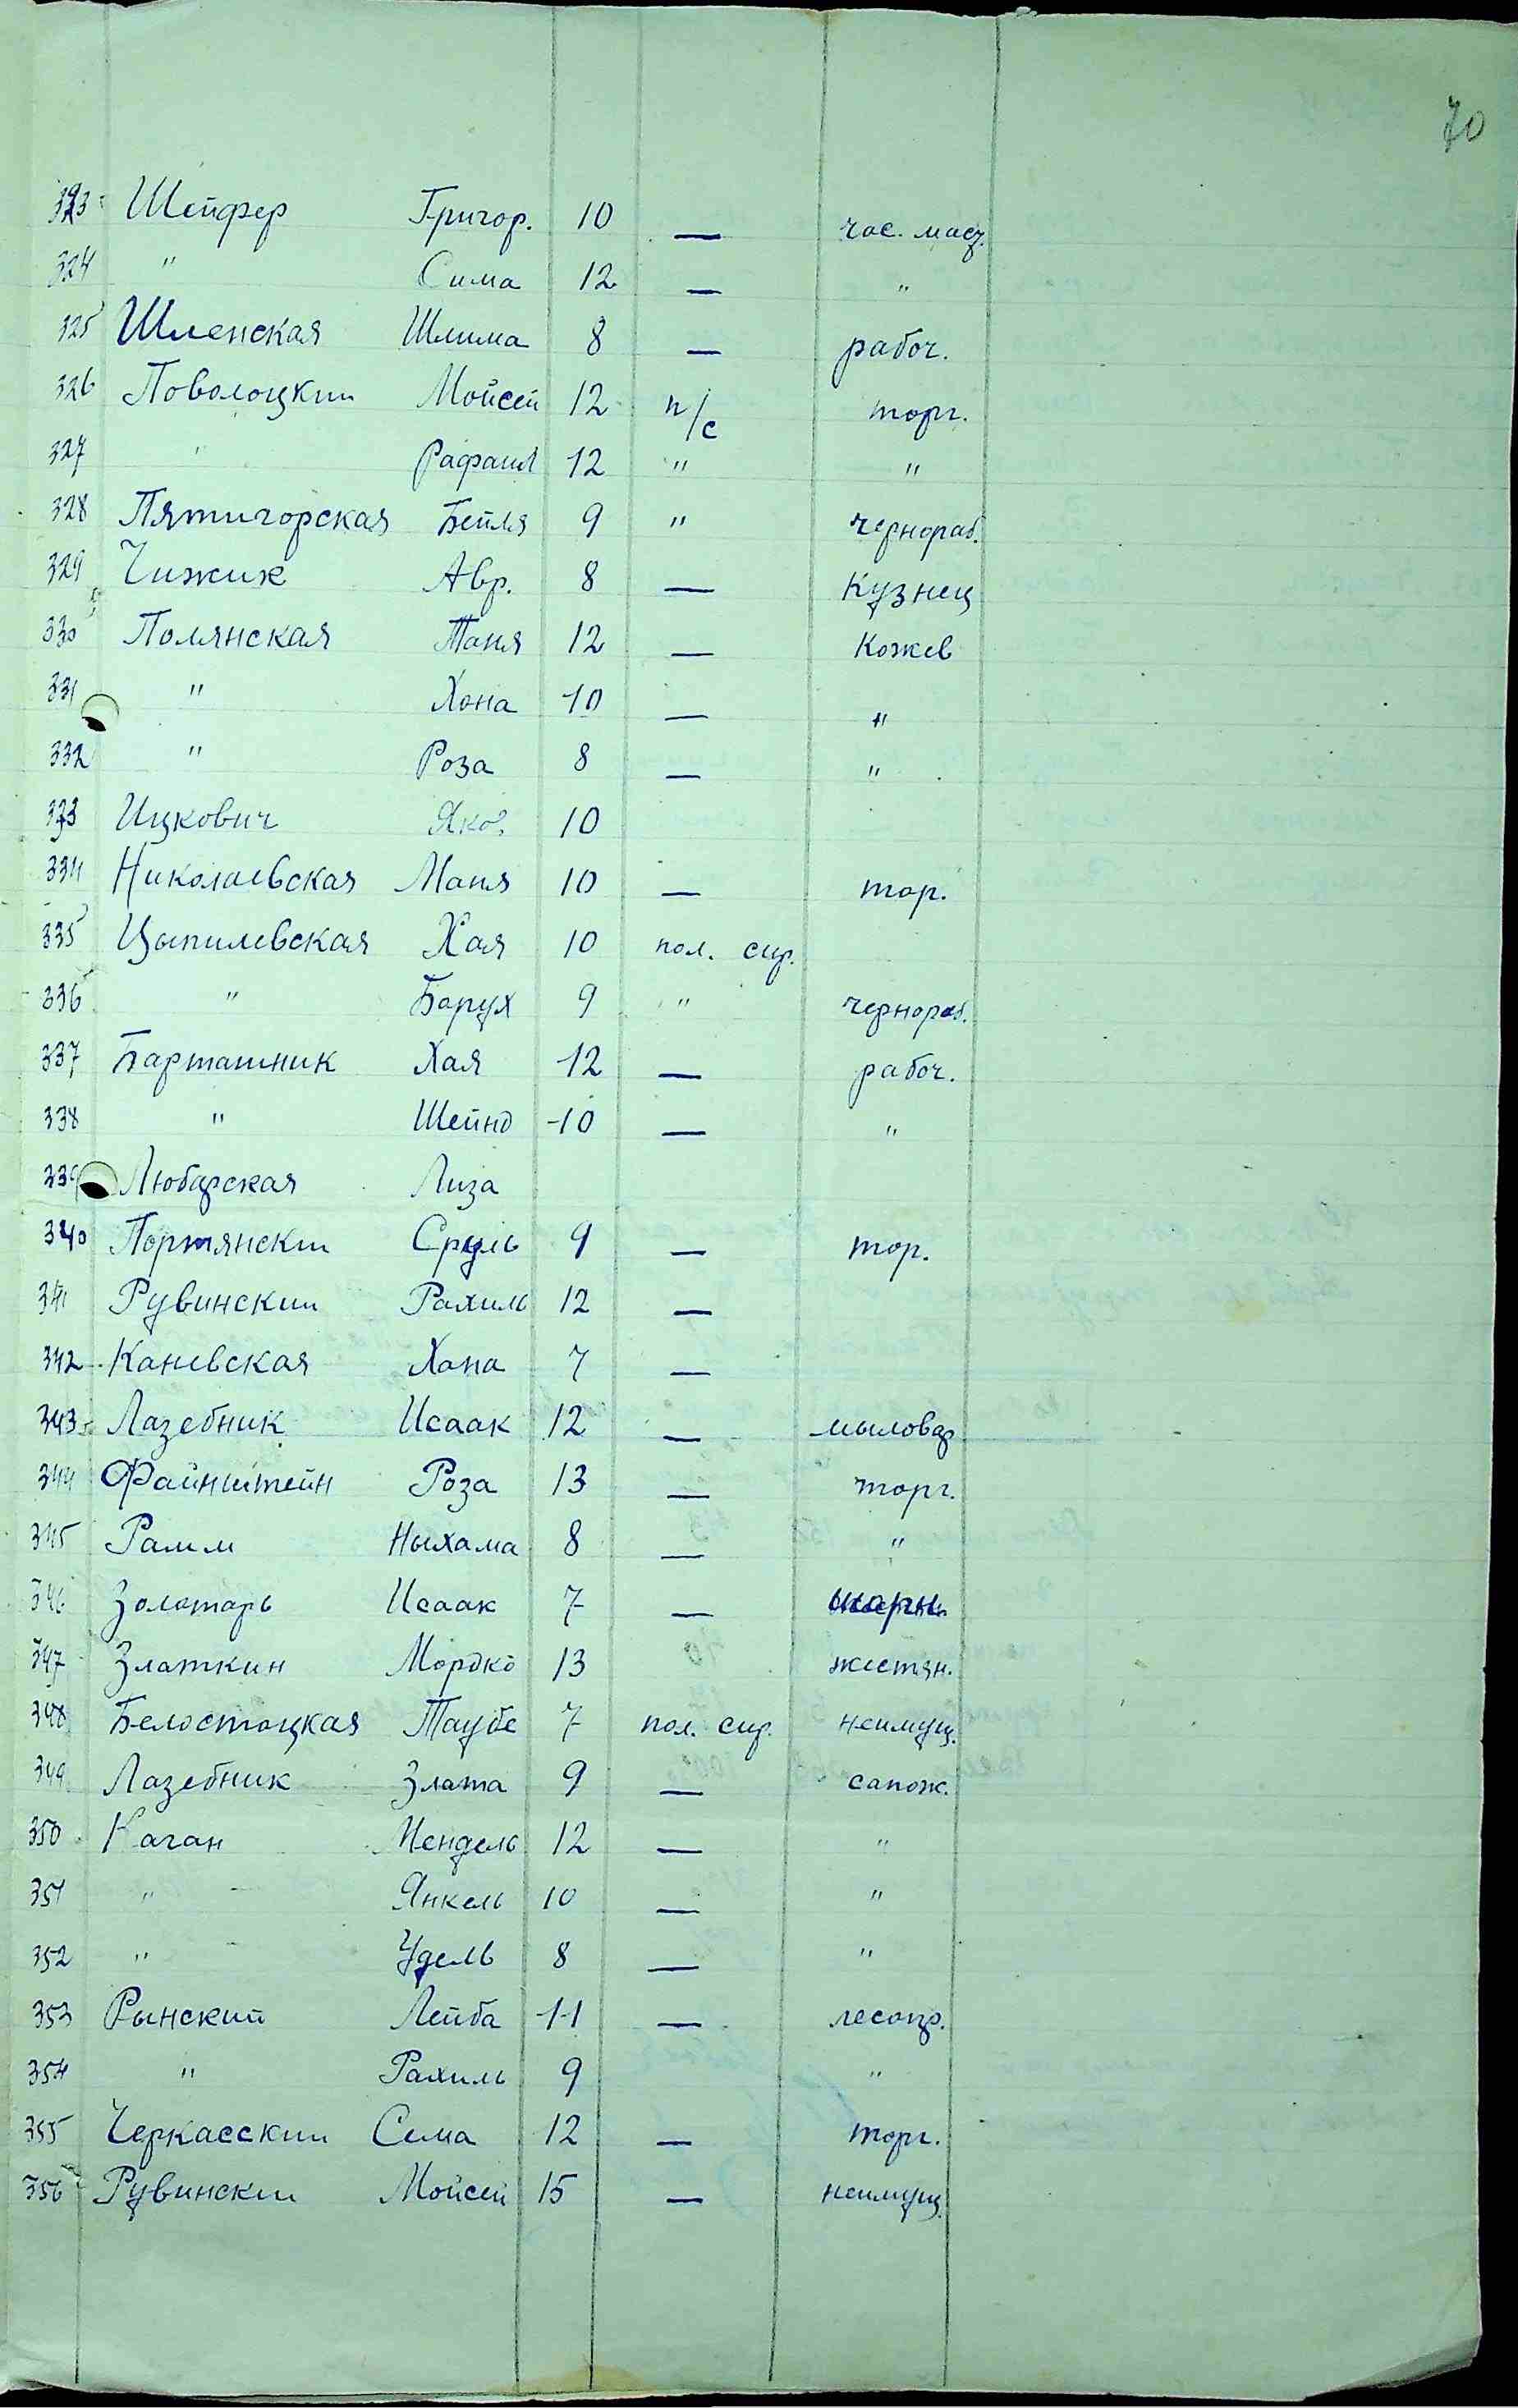 70
323 Шейфер Григор. 10 — час. маст.
324 " Сима 12 — "
325 Шленская Шлима 8 — рабоч.
326 Поволоцкий Мойсей 12 п/с торг.
327 " Рафаил 12 " "
328 Пятигорская Бейля 9 " чернораб.
329 Чижик Авр. 8 — Кузнец
330 Полянская Таня 12 — Кожев
331 " Хона 10 — "
332 " Роза 8 — "
333 Ицкович Яков 10
334 Николаевская Маня 10 — тор.
335 Цыпилевская Хая 10 пол. сир.
336 " Барух 9 " чернораб.
337 Барташник Хая 12 — рабоч.
338 " Шейнд 10 — "
339 Любарская Лиза
340 Портянский Сруль 9 — тор.
341 Рувинский Рахиль 12 —
342 Каневская Хана 7 —
343 Лазебник Исаак 12 — мыловар
344 Файнштейн Роза 13 — торг.
345 Рамм Ныхама 8 — "
346 Золотарь Исаак 7 —
347 Златкин Мордко 13 жестян.
348 Белостоцкая Таубе 7 пол. сир. неимущ.
349 Лазебник Злата 9 — сапож.
350 Каган Мендель 12 — "
351 " Янкель 10 — "
352 " Удель 8 — "
353 Рынский Лейба 11 — лесопр.
354 " Рахиль 9 "
355 Черкасский Сема 12 — торг.
356 Рувинский Мойсей 15 — неимущ.